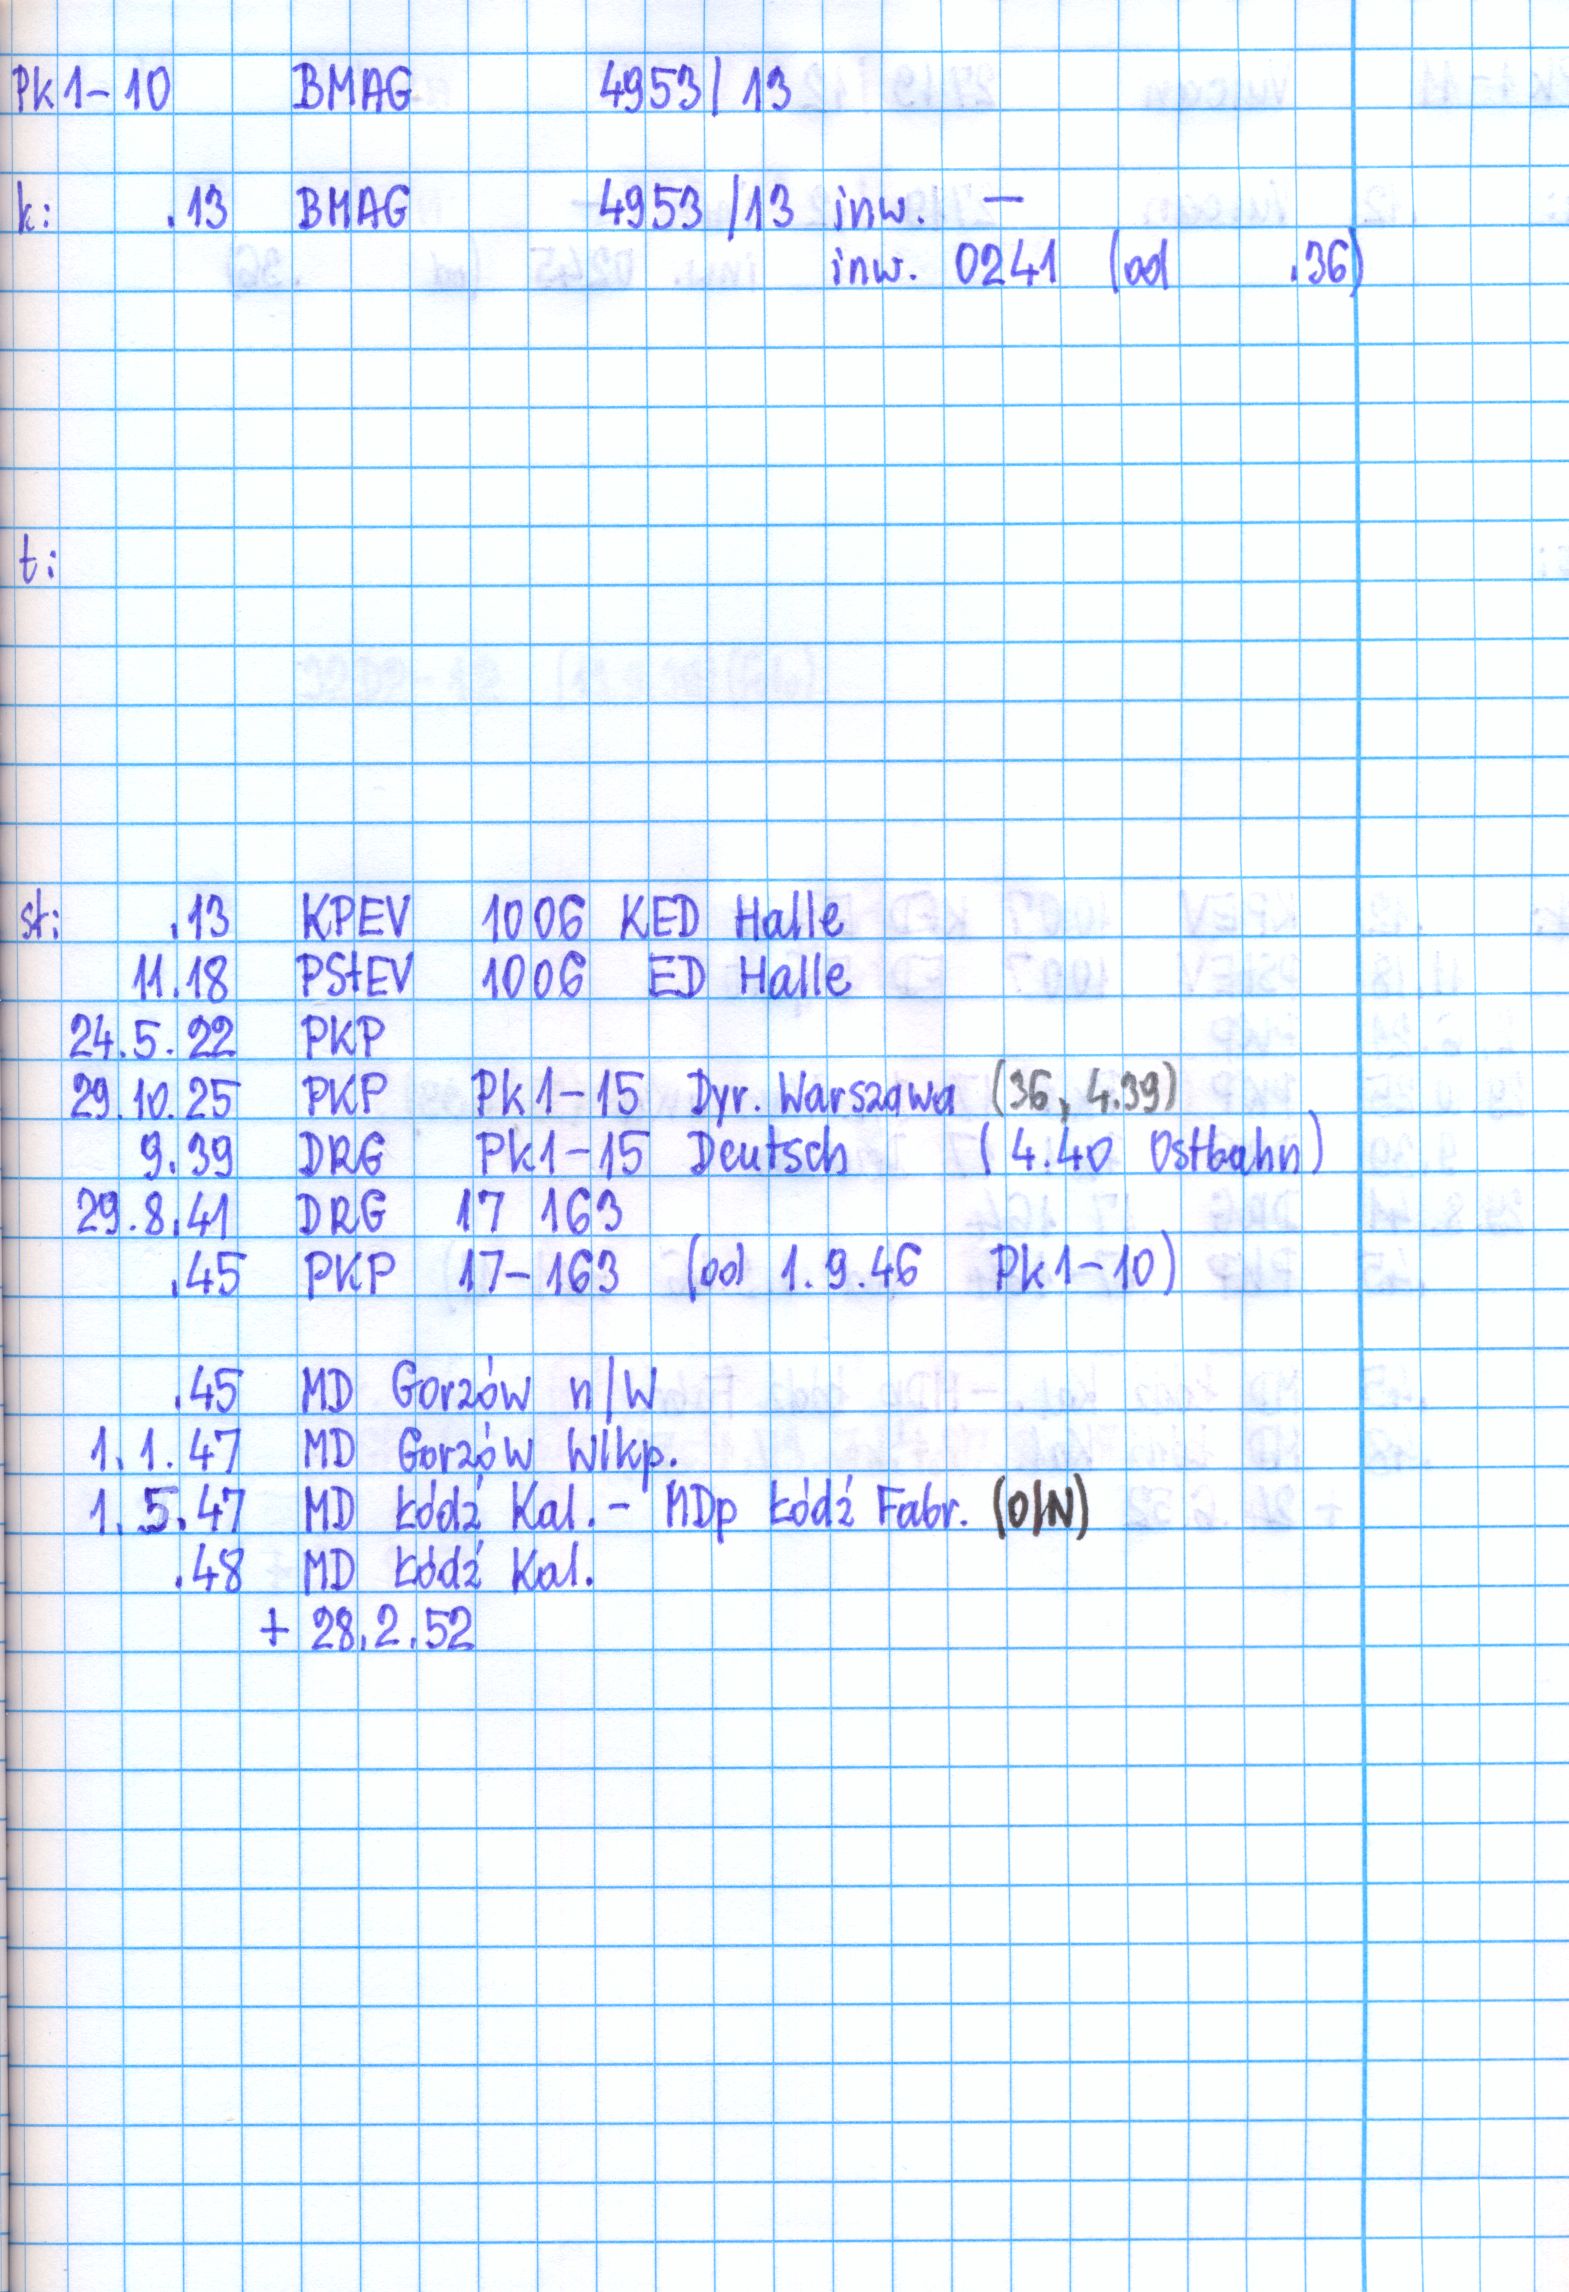 Pk1-10 BMAG 4953/13
k: .13 BMAG 4953/13 inw. —
inw. 0241 (od .36)
t:
st: .13 KPEV 1006 KED Halle
11.18 PStEV 1006 ED Halle
24.5.22 PKP
29.10.25 PKP Pk1-15 Dyr. Warszawa (36, 4.39)
9.39 DRG Pk1-15 Deutsch (4.40 Ostbahn)
29.8.41 DRG 17 163
.45 PKP 17-163 (od 1.9.46 Pk1-10)
.45 MD Gorzów n/W
1.1.47 MD Gorzów Wlkp.
1.5.47 MD Łódź Kal. - MDp Łódź Fabr. (O/N)
.48 MD Łódź Kal.
+ 28.2.52